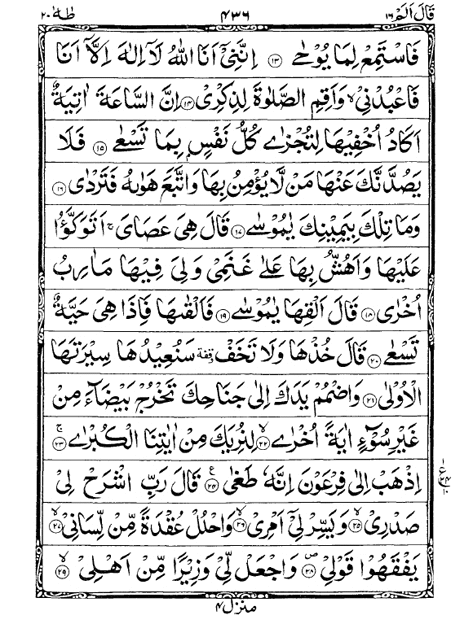 قَالَ اَلَمْ ١٦ ٤٣٦ طٰهٰ ٢٠
فَاسْتَمِعْ لِمَا يُوْحٰى ﴿١٣﴾ اِنَّنِيْۤ اَنَا اللّٰهُ لَاۤ اِلٰهَ اِلَّاۤ اَنَا
فَاعْبُدْنِيْ ۙ وَاَقِمِ الصَّلٰوةَ لِذِكْرِيْ ﴿١٤﴾ اِنَّ السَّاعَةَ اٰتِيَةٌ
اَكَادُ اُخْفِيْهَا لِتُجْزٰى كُلُّ نَفْسٍۭ بِمَا تَسْعٰى ﴿١٥﴾ فَلَا
يَصُدَّنَّكَ عَنْهَا مَنْ لَّا يُؤْمِنُ بِهَا وَاتَّبَعَ هَوٰىهُ فَتَرْدٰى ﴿١٦﴾
وَمَا تِلْكَ بِيَمِيْنِكَ يٰمُوْسٰى ﴿١٧﴾ قَالَ هِيَ عَصَايَ ۚ اَتَوَكَّؤُا
عَلَيْهَا وَاَهُشُّ بِهَا عَلٰى غَنَمِيْ وَلِيَ فِيْهَا مَاٰرِبُ
اُخْرٰى ﴿١٨﴾ قَالَ اَلْقِهَا يٰمُوْسٰى ﴿١٩﴾ فَاَلْقٰىهَا فَاِذَا هِيَ حَيَّةٌ
تَسْعٰى ﴿٢٠﴾ قَالَ خُذْهَا وَلَا تَخَفْ ۥ وقفة سَنُعِيْدُهَا سِيْرَتَهَا
الْاُوْلٰى ﴿٢١﴾ وَاضْمُمْ يَدَكَ اِلٰى جَنَاحِكَ تَخْرُجْ بَيْضَآءَ مِنْ
غَيْرِ سُوْٓءٍ اٰيَةً اُخْرٰى ﴿٢٢﴾ لِنُرِيَكَ مِنْ اٰيٰتِنَا الْكُبْرٰى ﴿٢٣﴾
اِذْهَبْ اِلٰى فِرْعَوْنَ اِنَّهٗ طَغٰى ﴿٢٤﴾ قَالَ رَبِّ اشْرَحْ لِيْ
صَدْرِيْ ﴿٢٥﴾ وَيَسِّرْ لِيْۤ اَمْرِيْ ﴿٢٦﴾ وَاحْلُلْ عُقْدَةً مِّنْ لِّسَانِيْ ﴿٢٧﴾
يَفْقَهُوْا قَوْلِيْ ﴿٢٨﴾ وَاجْعَلْ لِّيْ وَزِيْرًا مِّنْ اَهْلِيْ ﴿٢٩﴾
منزل ٤